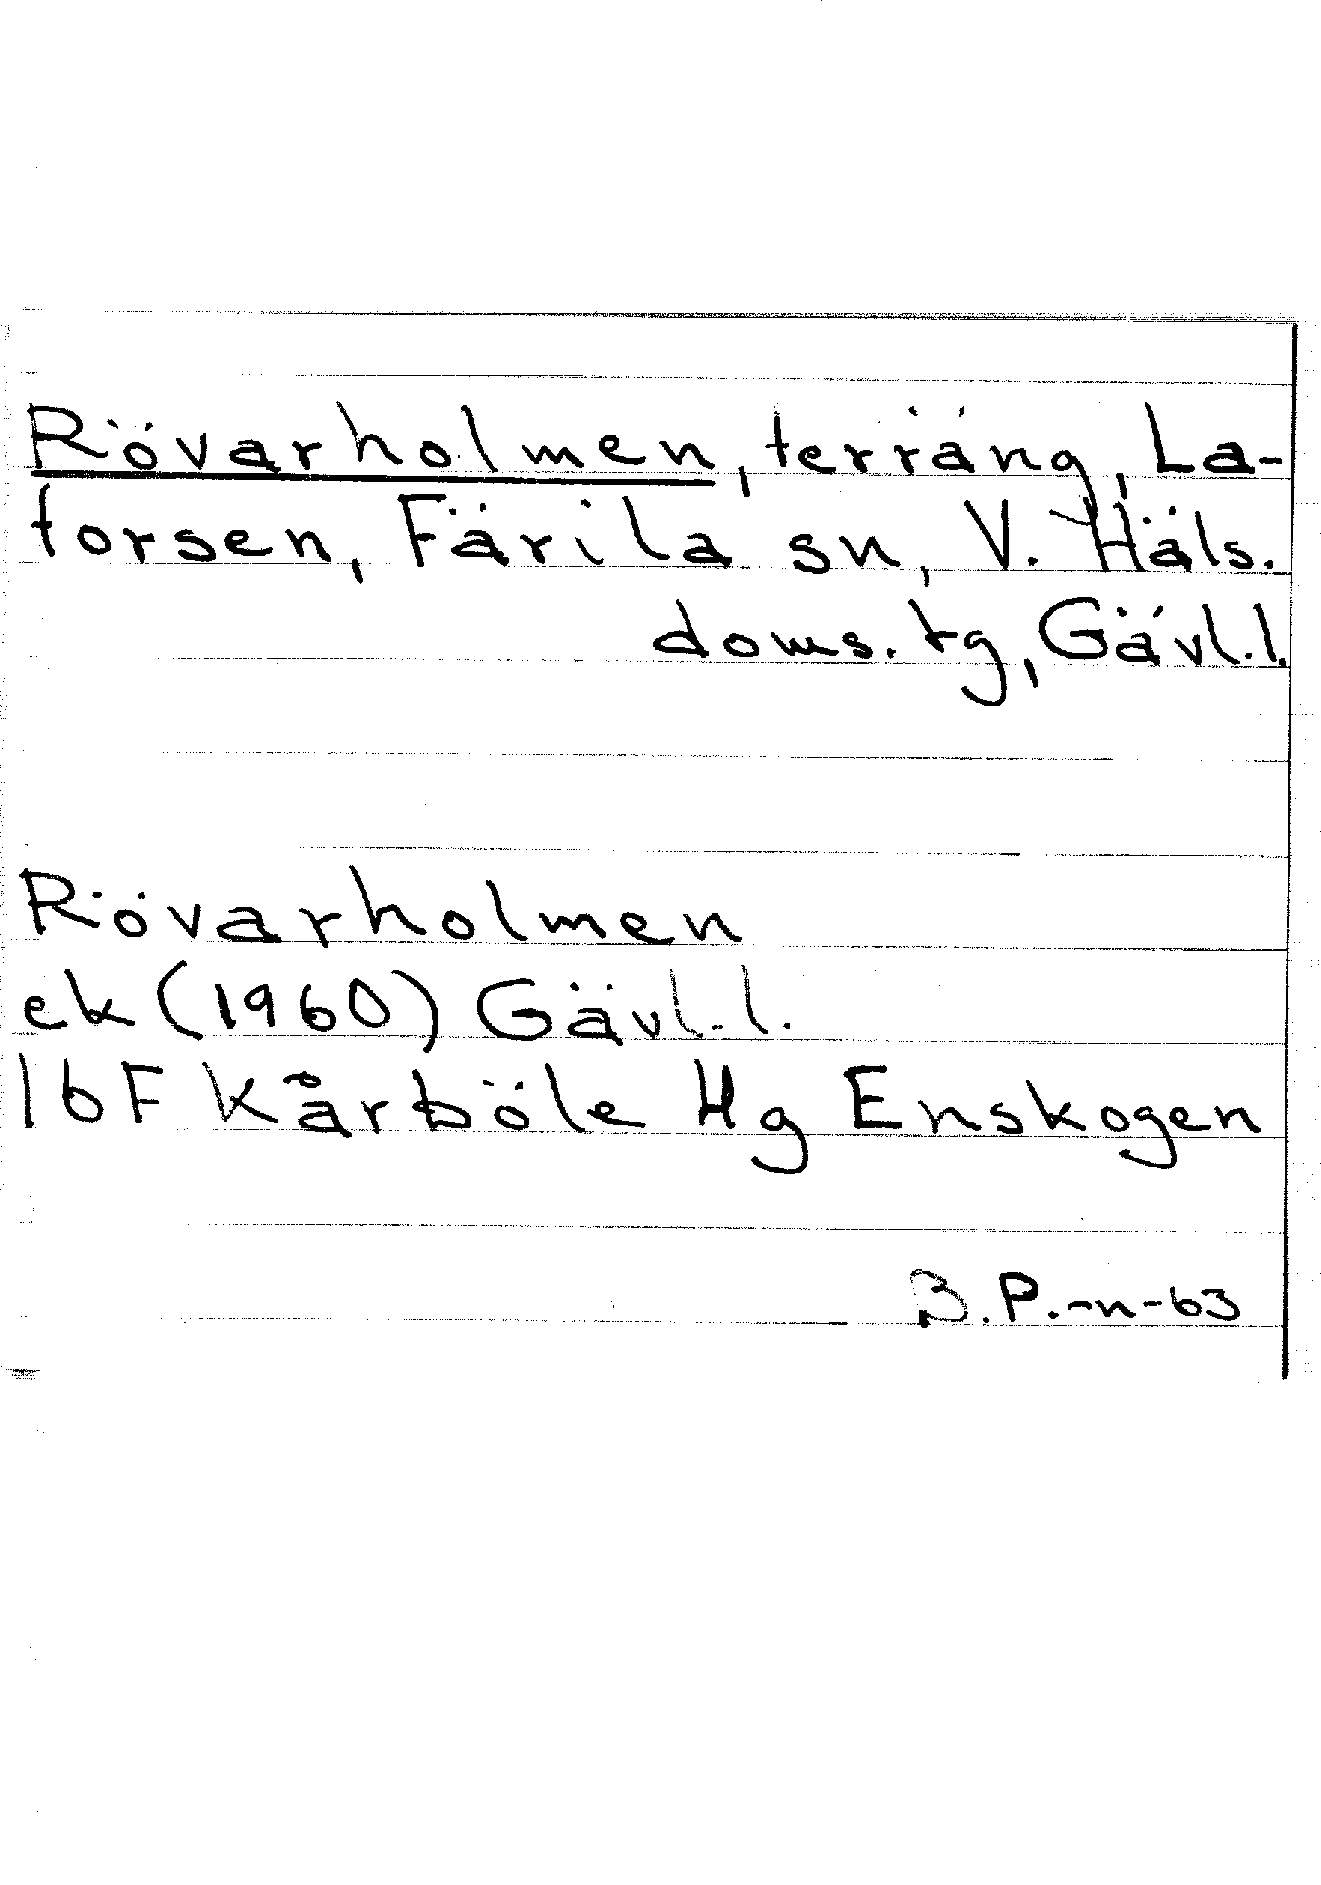 Rövarholmen, terräng, La-
forsen, Färila sn, V. Häls.
doms. tg, Gävl.l.
Rövarholmen
ek (1960) Gävl.l.
16F Kårböle Hg Enskogen
B.P.-n-63